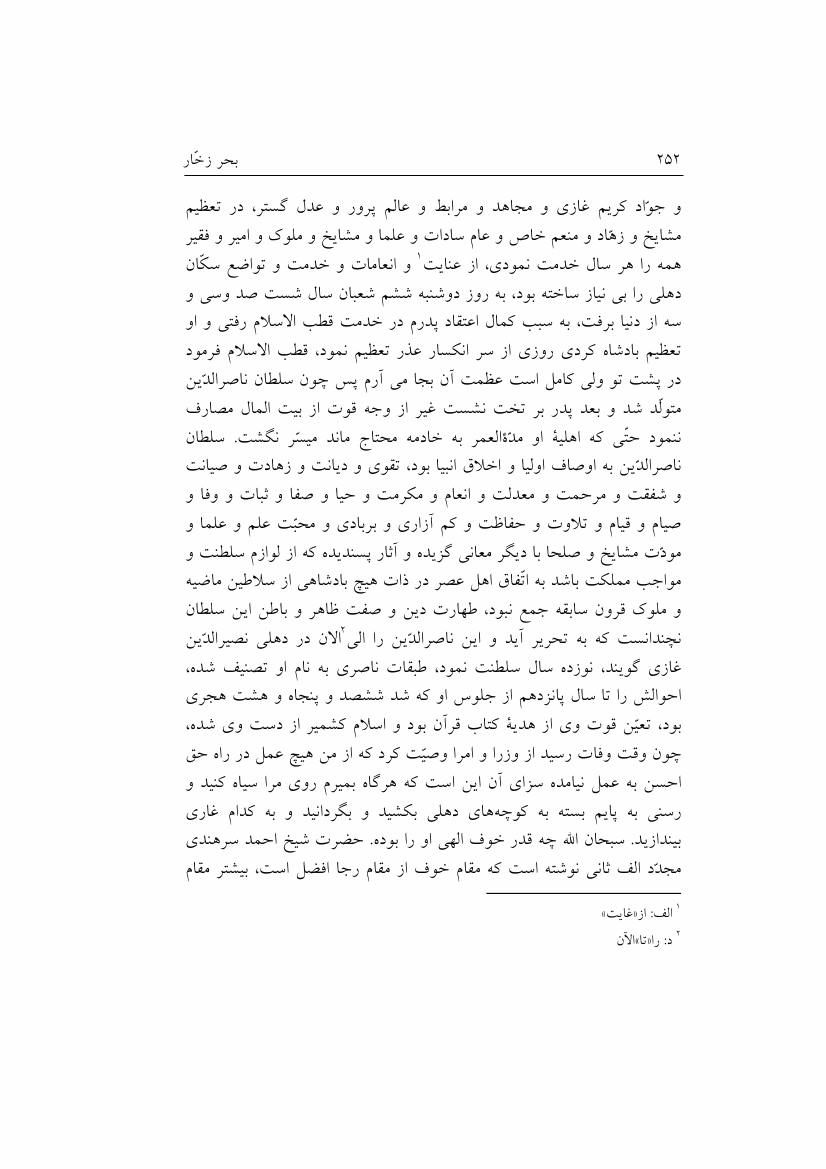 ۲۵۲ بحر زخّار
و جوّاد کریم غازی و مجاهد و مرابط و عالم پرور و عدل گستر، در تعظیم
مشایخ و زهّاد و منعم خاص و عام سادات و علما و مشایخ و ملوک و امیر و فقیر
همه را هر سال خدمت نمودی، از عنایت۱ و انعامات و خدمت و تواضع سکّان
دهلی را بی نیاز ساخته بود، به روز دوشنبه ششم شعبان سال شست صد وسی و
سه از دنیا برفت، به سبب کمال اعتقاد پدرم در خدمت قطب الاسلام رفتی و او
تعظیم بادشاه کردی روزی از سر انکسار عذر تعظیم نمود، قطب الاسلام فرمود
در پشت تو ولی کامل است عظمت آن بجا می آرم پس چون سلطان ناصرالدّین
متولّد شد و بعد پدر بر تخت نشست غیر از وجه قوت از بیت المال مصارف
ننمود حتّی که اهلیهٔ او مدّةالعمر به خادمه محتاج ماند میسّر نگشت. سلطان
ناصرالدّین به اوصاف اولیا و اخلاق انبیا بود، تقوی و دیانت و زهادت و صیانت
و شفقت و مرحمت و معدلت و انعام و مکرمت و حیا و صفا و ثبات و وفا و
صیام و قیام و تلاوت و حفاظت و کم آزاری و بربادی و محبّت علم و علما و
مودّت مشایخ و صلحا با دیگر معانی گزیده و آثار پسندیده که از لوازم سلطنت و
مواجب مملکت باشد به اتّفاق اهل عصر در ذات هیچ بادشاهی از سلاطین ماضیه
و ملوک قرون سابقه جمع نبود، طهارت دین و صفت ظاهر و باطن این سلطان
نچندانست که به تحریر آید و این ناصرالدّین را الی۲الان در دهلی نصیرالدّین
غازی گویند، نوزده سال سلطنت نمود، طبقات ناصری به نام او تصنیف شده،
احوالش را تا سال پانزدهم از جلوس او که شد ششصد و پنجاه و هشت هجری
بود، تعیّن قوت وی از هدیهٔ کتاب قرآن بود و اسلام کشمیر از دست وی شده،
چون وقت وفات رسید از وزرا و امرا وصیّت کرد که از من هیچ عمل در راه حق
احسن به عمل نیامده سزای آن این است که هرگاه بمیرم روی مرا سیاه کنید و
رسنی به پایم بسته به کوچه‌های دهلی بکشید و بگردانید و به کدام غاری
بیندازید. سبحان الله چه قدر خوف الهی او را بوده. حضرت شیخ احمد سرهندی
مجدّد الف ثانی نوشته است که مقام خوف از مقام رجا افضل است، بیشتر مقام
۱ الف: از«غایت»
۲ د: را«تا»الآن